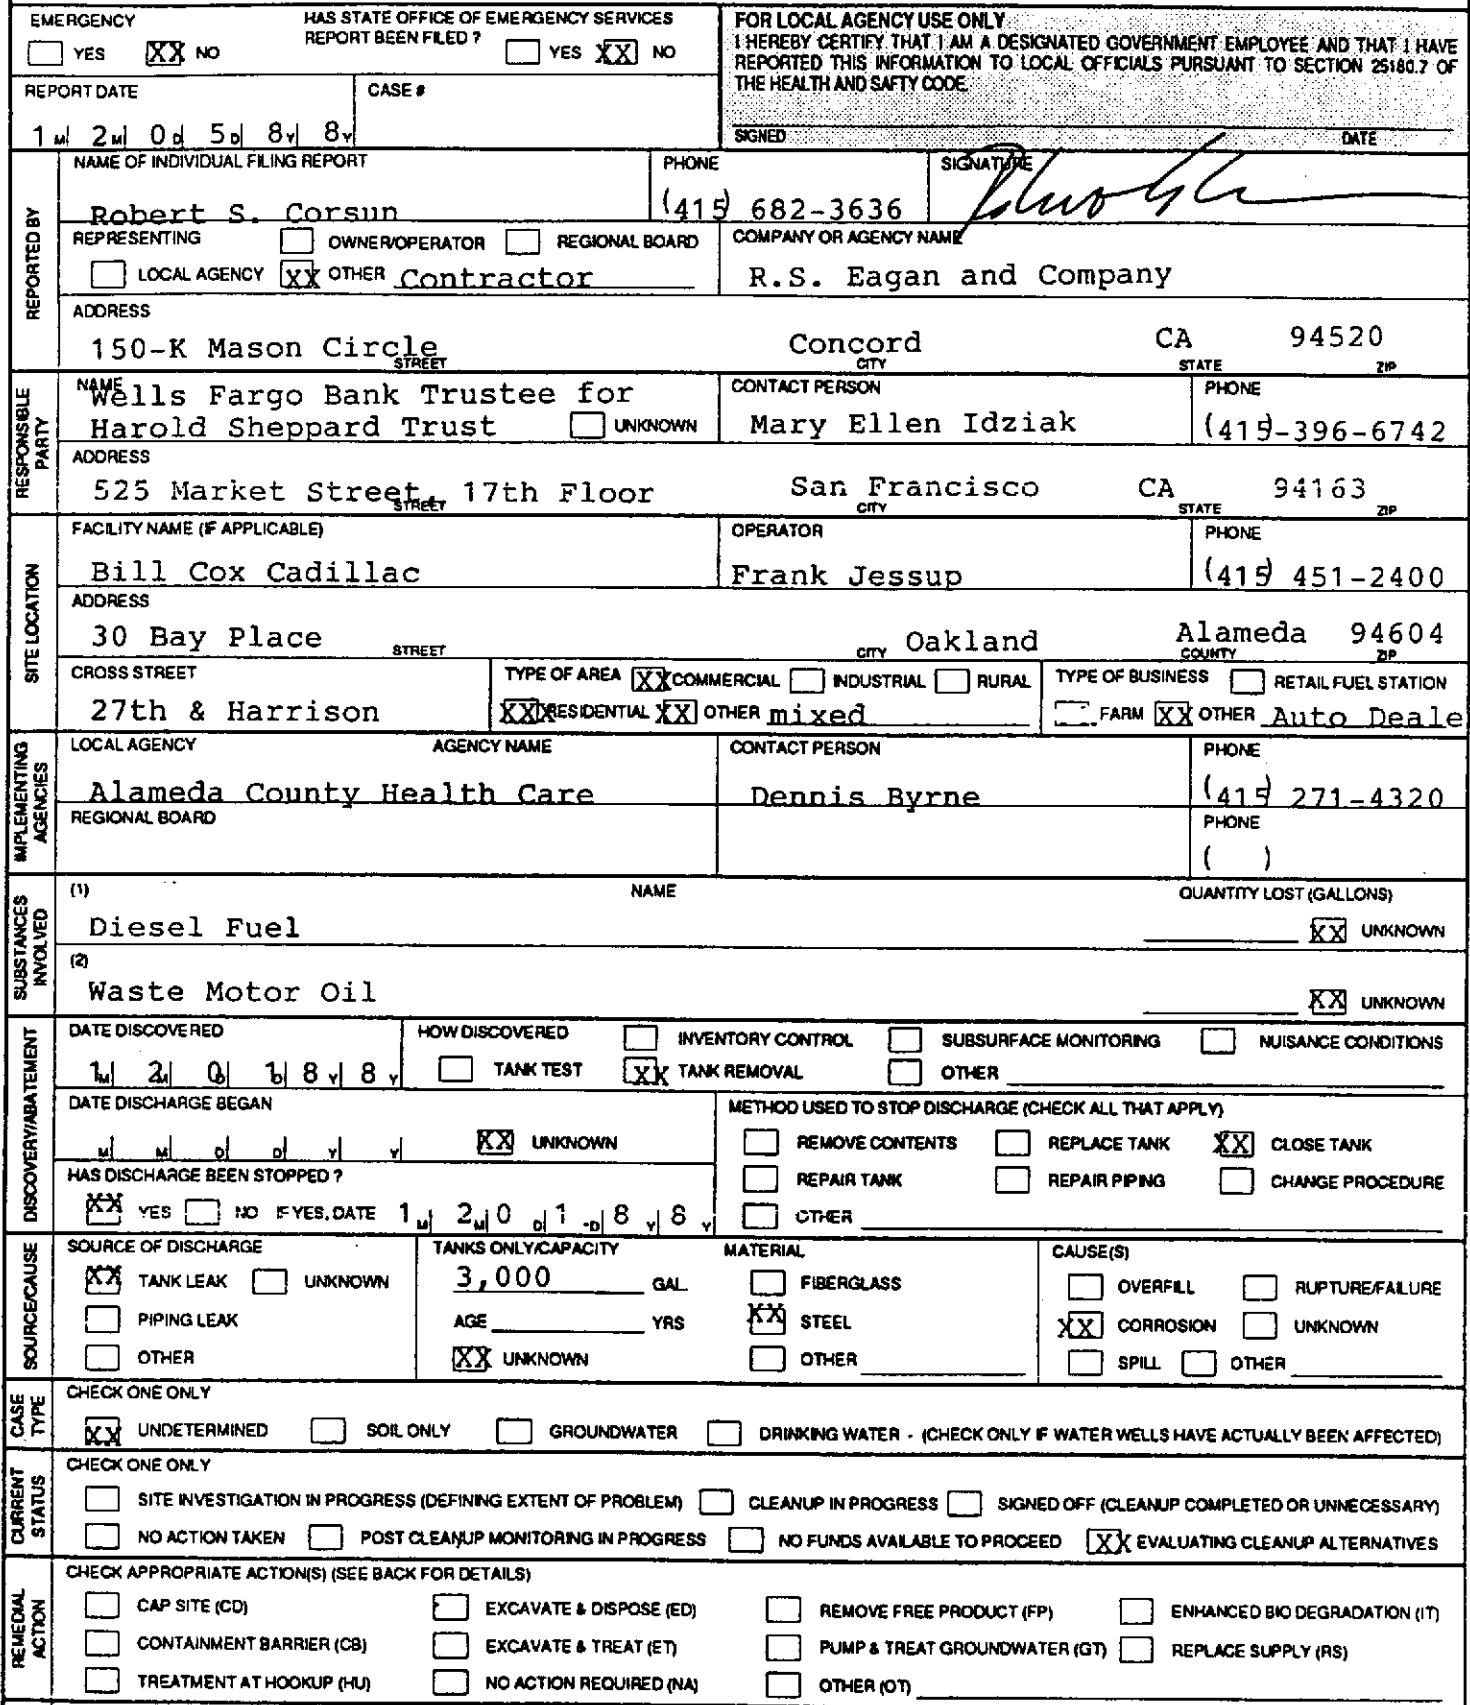 EMERGENCY
YES XX NO
HAS STATE OFFICE OF EMERGENCY SERVICES
REPORT BEEN FILED ?
YES XX NO
FOR LOCAL AGENCY USE ONLY
I HEREBY CERTIFY THAT I AM A DESIGNATED GOVERNMENT EMPLOYEE AND THAT I HAVE
REPORTED THIS INFORMATION TO LOCAL OFFICIALS PURSUANT TO SECTION 25180.7 OF
THE HEALTH AND SAFTY CODE.
SIGNED DATE
REPORT DATE
1 M 2 M 0 D 5 D 8 Y 8 Y
CASE #
REPORTED BY
NAME OF INDIVIDUAL FILING REPORT
Robert S. Corsun
PHONE
(415) 682-3636
SIGNATURE
REPRESENTING OWNER/OPERATOR REGIONAL BOARD
LOCAL AGENCY XX OTHER Contractor
COMPANY OR AGENCY NAME
R.S. Eagan and Company
ADDRESS
150-K Mason Circle Concord CA 94520
STREET CITY STATE ZIP
RESPONSIBLE PARTY
NAME
Wells Fargo Bank Trustee for
Harold Sheppard Trust UNKNOWN
CONTACT PERSON
Mary Ellen Idziak
PHONE
(415)-396-6742
ADDRESS
525 Market Street, 17th Floor San Francisco CA 94163
STREET CITY STATE ZIP
SITE LOCATION
FACILITY NAME (IF APPLICABLE)
Bill Cox Cadillac
OPERATOR
Frank Jessup
PHONE
(415) 451-2400
ADDRESS
30 Bay Place Oakland Alameda 94604
STREET CITY COUNTY ZIP
CROSS STREET
27th & Harrison
TYPE OF AREA XX COMMERCIAL INDUSTRIAL RURAL
XXX RESIDENTIAL XX OTHER mixed
TYPE OF BUSINESS RETAIL FUEL STATION
FARM XX OTHER Auto Deale
IMPLEMENTING AGENCIES
LOCAL AGENCY AGENCY NAME
Alameda County Health Care
CONTACT PERSON
Dennis Byrne
PHONE
(415) 271-4320
REGIONAL BOARD
PHONE
( )
SUBSTANCES INVOLVED
(1) NAME QUANTITY LOST (GALLONS)
Diesel Fuel XX UNKNOWN
(2)
Waste Motor Oil XX UNKNOWN
DISCOVERY/ABATEMENT
DATE DISCOVERED
1 M 2 M 0 D 1 D 8 Y 8 Y
HOW DISCOVERED INVENTORY CONTROL SUBSURFACE MONITORING NUISANCE CONDITIONS
TANK TEST XX TANK REMOVAL OTHER
DATE DISCHARGE BEGAN
M M D D Y Y XX UNKNOWN
METHOD USED TO STOP DISCHARGE (CHECK ALL THAT APPLY)
REMOVE CONTENTS REPLACE TANK XX CLOSE TANK
REPAIR TANK REPAIR PIPING CHANGE PROCEDURE
OTHER
HAS DISCHARGE BEEN STOPPED ?
XX YES NO IF YES, DATE 1 M 2 M 0 D 1 D 8 Y 8 Y
SOURCE/CAUSE
SOURCE OF DISCHARGE
XX TANK LEAK UNKNOWN
PIPING LEAK
OTHER
TANKS ONLY/CAPACITY
3,000 GAL
AGE YRS
XX UNKNOWN
MATERIAL
FIBERGLASS
XX STEEL
OTHER
CAUSE(S)
OVERFILL RUPTURE/FAILURE
XX CORROSION UNKNOWN
SPILL OTHER
CASE TYPE
CHECK ONE ONLY
XX UNDETERMINED SOIL ONLY GROUNDWATER DRINKING WATER - (CHECK ONLY IF WATER WELLS HAVE ACTUALLY BEEN AFFECTED)
CURRENT STATUS
CHECK ONE ONLY
SITE INVESTIGATION IN PROGRESS (DEFINING EXTENT OF PROBLEM) CLEANUP IN PROGRESS SIGNED OFF (CLEANUP COMPLETED OR UNNECESSARY)
NO ACTION TAKEN POST CLEANUP MONITORING IN PROGRESS NO FUNDS AVAILABLE TO PROCEED XX EVALUATING CLEANUP ALTERNATIVES
REMEDIAL ACTION
CHECK APPROPRIATE ACTION(S) (SEE BACK FOR DETAILS)
CAP SITE (CD) EXCAVATE & DISPOSE (ED) REMOVE FREE PRODUCT (FP) ENHANCED BIO DEGRADATION (IT)
CONTAINMENT BARRIER (CB) EXCAVATE & TREAT (ET) PUMP & TREAT GROUNDWATER (GT) REPLACE SUPPLY (RS)
TREATMENT AT HOOKUP (HU) NO ACTION REQUIRED (NA) OTHER (OT)